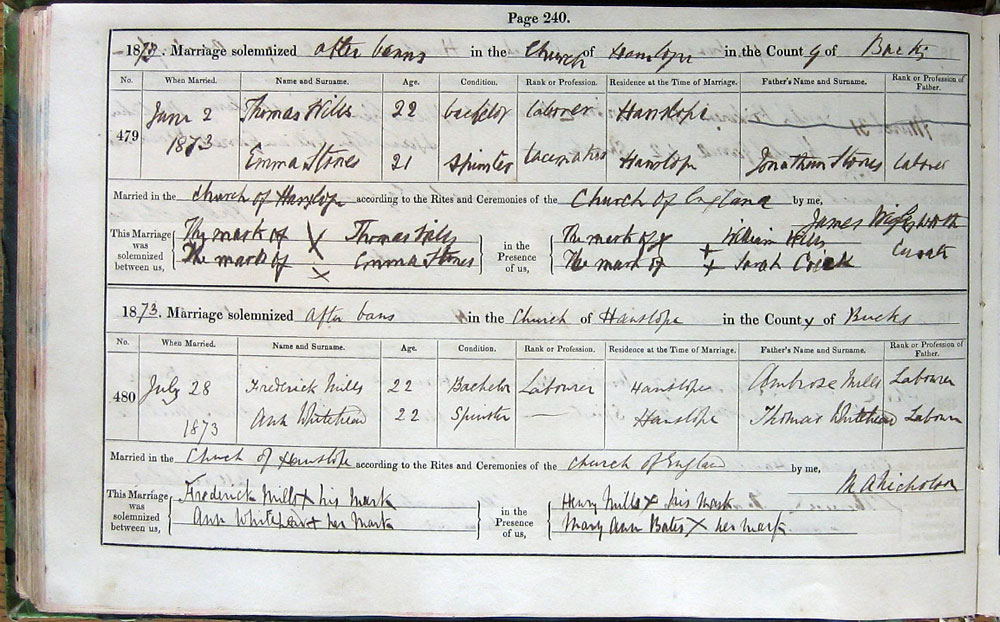 Page 240.
1873. Marriage solemnized after banns in the Church of Hanslope in the County of Bucks
No. When Married. Name and Surname. Age. Condition. Rank or Profession. Residence at the Time of Marriage. Father's Name and Surname. Rank or Profession of Father.
479 June 2 Thomas Wills 22 bachelor labourer Hanslope
1873 Emma Stones 21 Spinster lacemaker Hanslope Jonathan Stones labourer
Married in the church of Hanslope according to the Rites and Ceremonies of the Church of England by me,
James Wigglesworth
Curate
This Marriage was solemnized between us, in the Presence of us,
The mark of X Thomas Wills The mark of x William Wills
The mark of X Emma Stones The mark of x Sarah
1873. Marriage solemnized after bans in the Church of Hanslope in the County of Bucks
No. When Married. Name and Surname. Age. Condition. Rank or Profession. Residence at the Time of Marriage. Father's Name and Surname. Rank or Profession of Father.
480 July 28 Frederick Mills 22 Bachelor Labourer Hanslope Ambrose Mills Labourer
1873 Ann Whitehead 22 Spinster — Hanslope Thomas Whitehead Labourer
Married in the Church of Hanslope according to the Rites and Ceremonies of the church of England by me,
M A Nicholson
This Marriage was solemnized between us, in the Presence of us,
Frederick Mills X his Mark Henry Mills X his Mark
Ann Whitehead X her Mark Mary Ann Bates X her mark